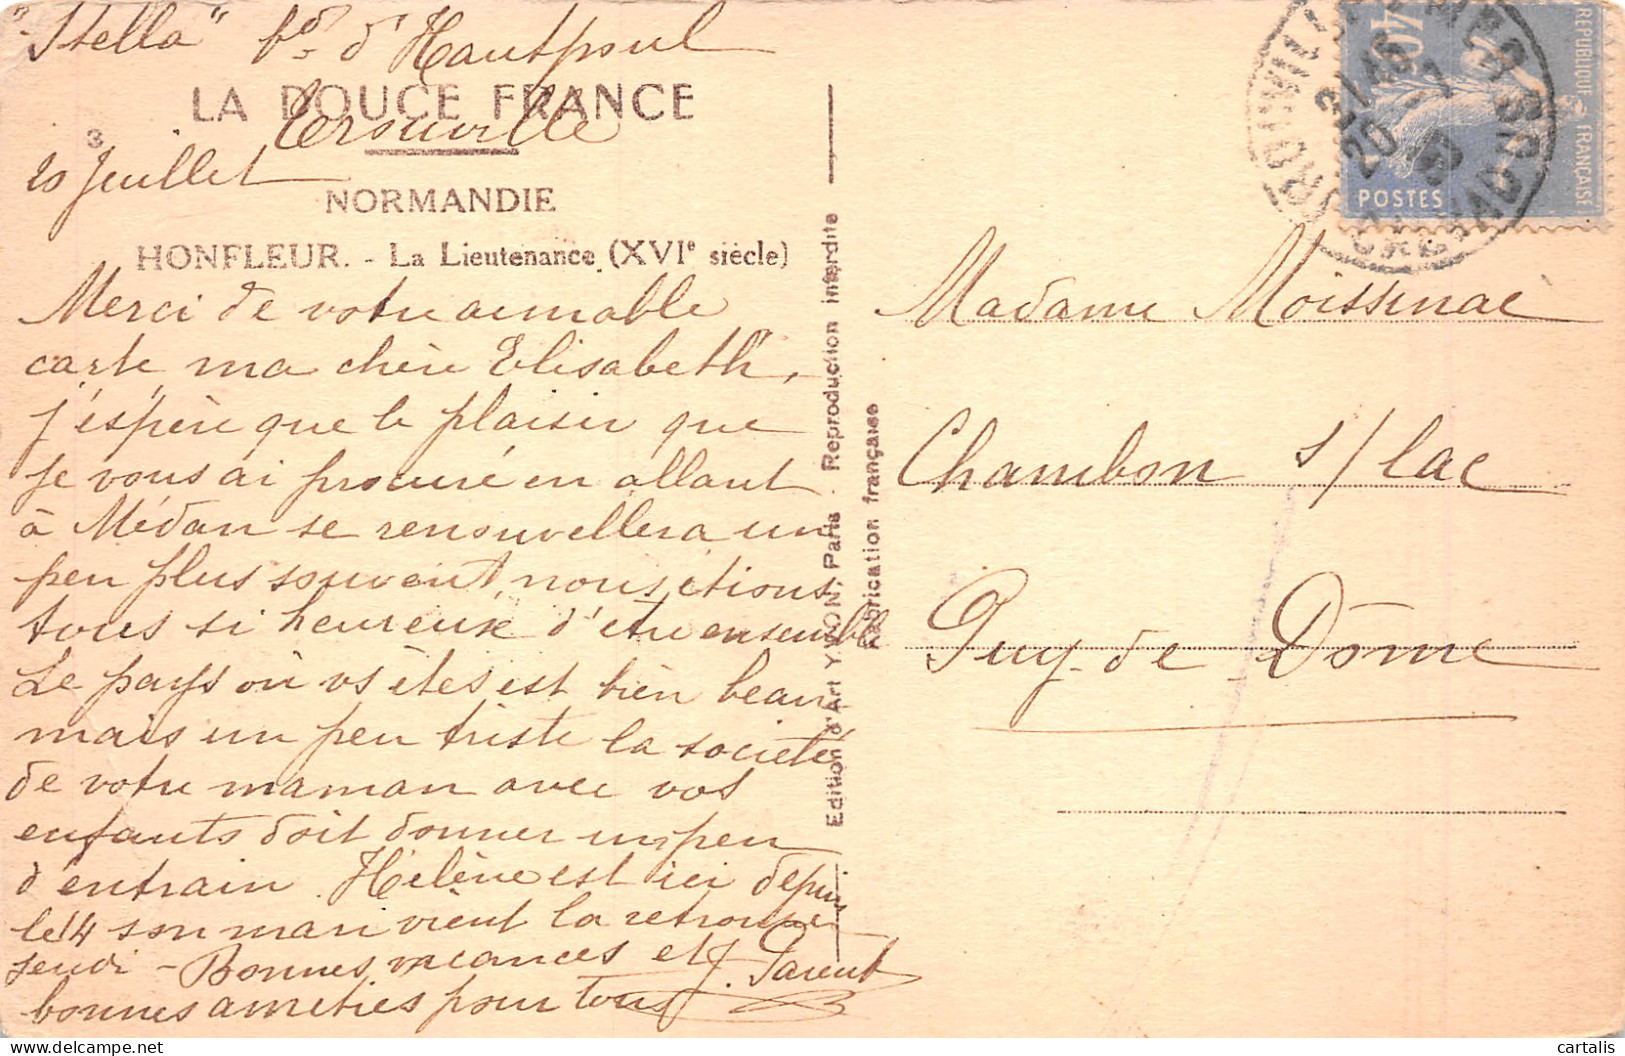 "Stella" bd d'Hautpoul
LA DOUCE FRANCE
Trouville
3
20 Juillet
NORMANDIE
HONFLEUR. - La Lieutenance (XVIe siècle)
Merci de votre aimable
carte ma chère Elisabeth,
j'espère que le plaisir que
je vous ai procuré en allant
à Médan se renouvellera un
peu plus souvent, nous étions
tous si heureux d'être ensemble
Le pays où vs êtes est bien beau
mais un peu triste la société
de votre maman avec vos
enfants doit donner un peu
d'entrain. Hélène est ici depuis
le 14 son mari vient la retrouver
jeudi - Bonnes vacances et
bonnes amitiés pour tous J. Parent
Edition d'Art YVON, Paris. Reproduction interdite
Fabrication française
40c
REPUBLIQUE FRANÇAISE
POSTES
Madame Moissinac
Chambon s/ lac
Puy-de Dôme
cartalis
delcampe.net